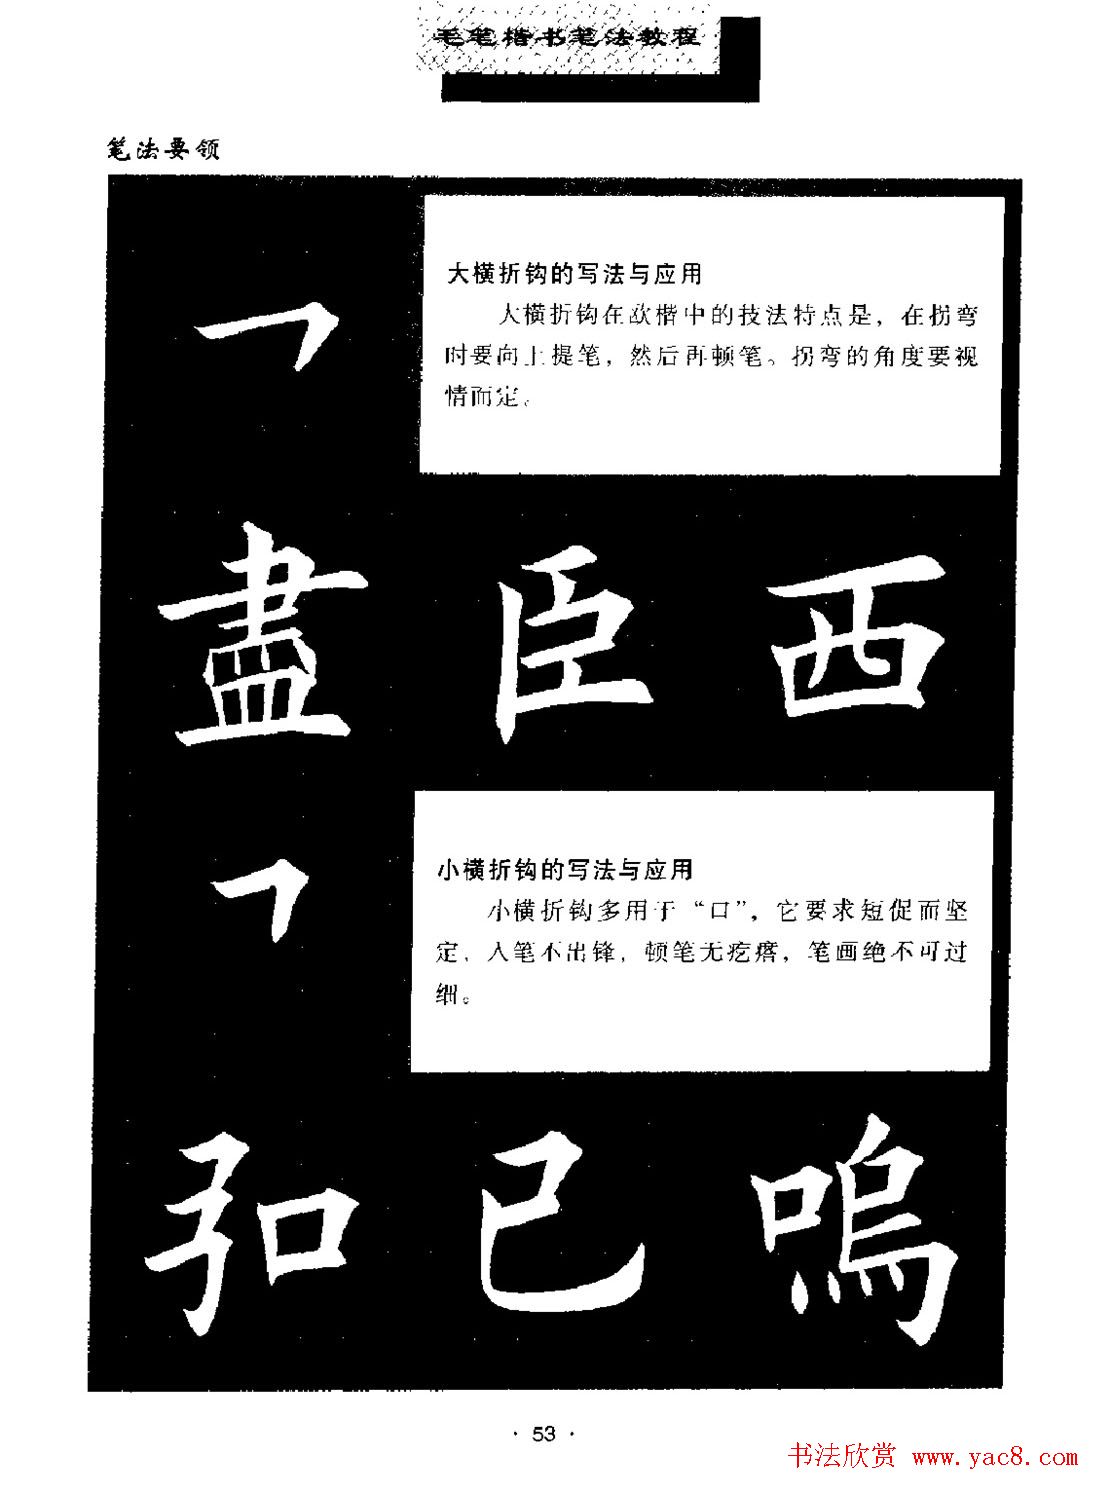 毛笔楷书笔法教程
笔法要领
大横折钩的写法与应用
大横折钩在欧楷中的技法特点是，在拐弯
时要向上提笔，然后再顿笔。拐弯的角度要视
情而定。
盡臣西
小横折钩的写法与应用
小横折钩多用于“口”，它要求短促而坚
定，入笔不出锋，顿笔无疙瘩，笔画绝不可过
细。
弜已嗚
· 53 ·
书法欣赏 www.yac8.com